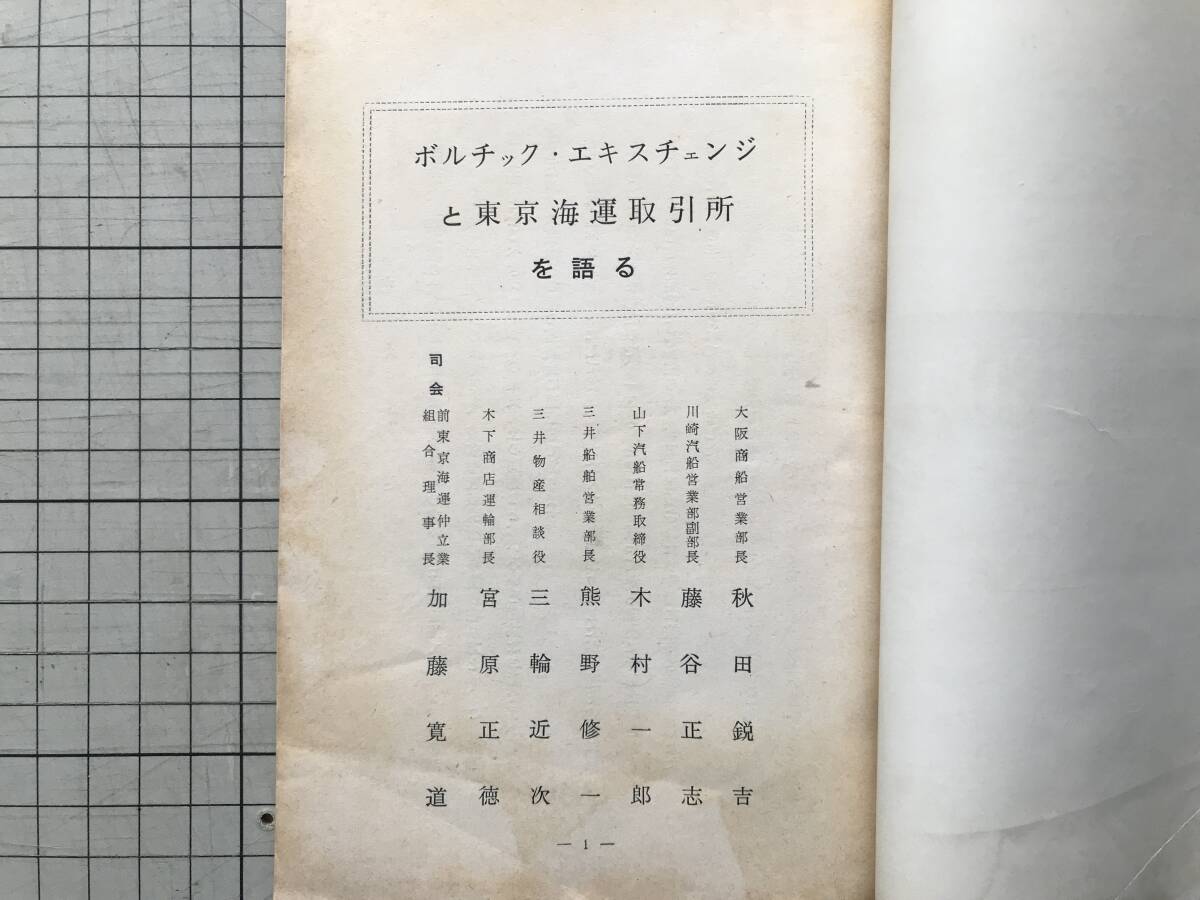 ボルチック・エキスチェンジ
と東京海運取引所
を語る
大阪商船営業部長 秋田鋭吉
川崎汽船営業部副部長 藤谷正志
山下汽船常務取締役 木村一郎
三井船舶営業部長 熊野修一
三井物産相談役 三輪近次
木下商店運輸部長 宮原正徳
司会 前東京海運仲立業組合理事長 加藤寛道
— 1 —